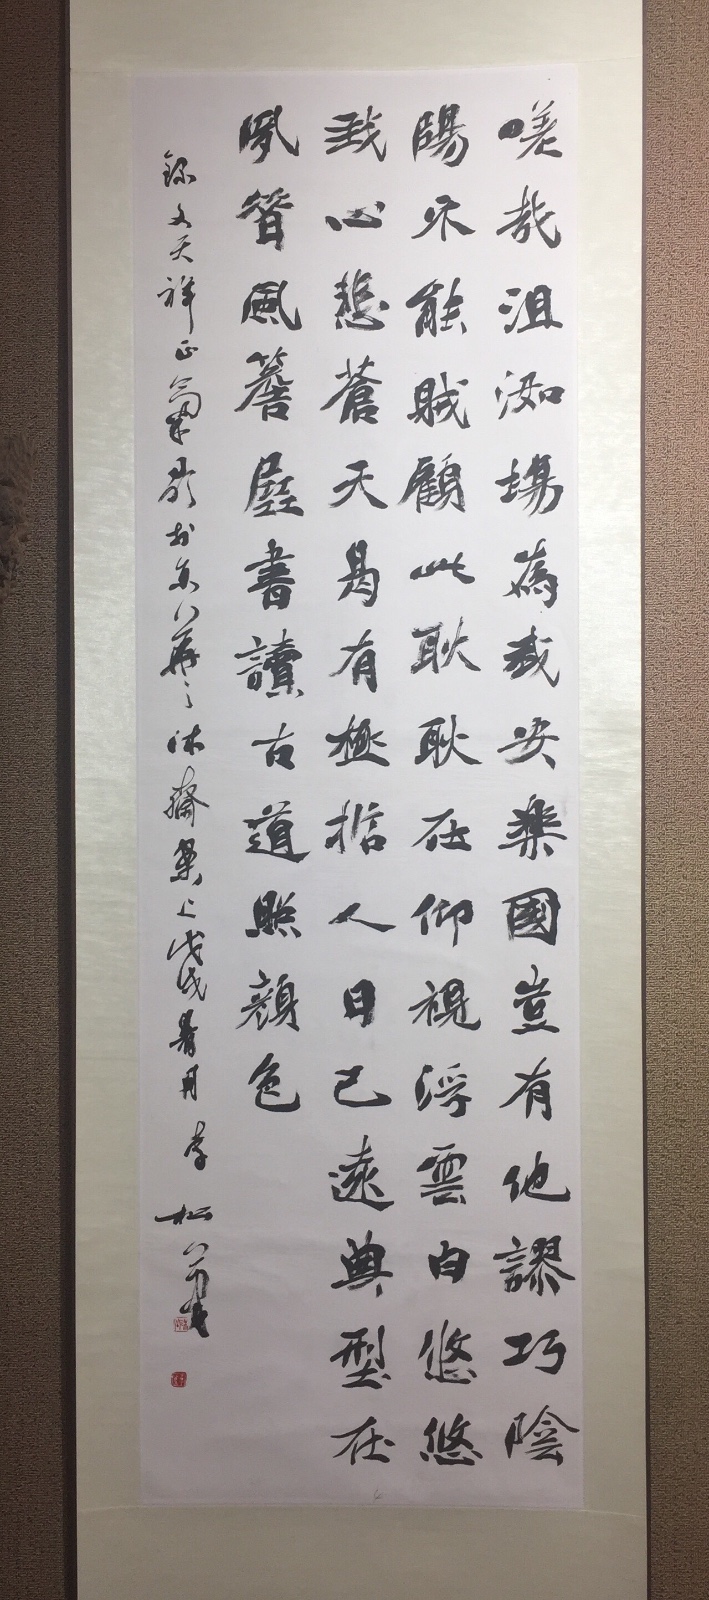 嗟哉沮洳場為我安樂國豈有他謬巧陰
陽不能賊顧此耿耿在仰視浮雲白悠悠
我心悲蒼天曷有極哲人日已遠典型在
夙昔風簷展書讀古道照顏色
錄文天祥正氣歌於京華之沐齋案上戊戌暑月李松